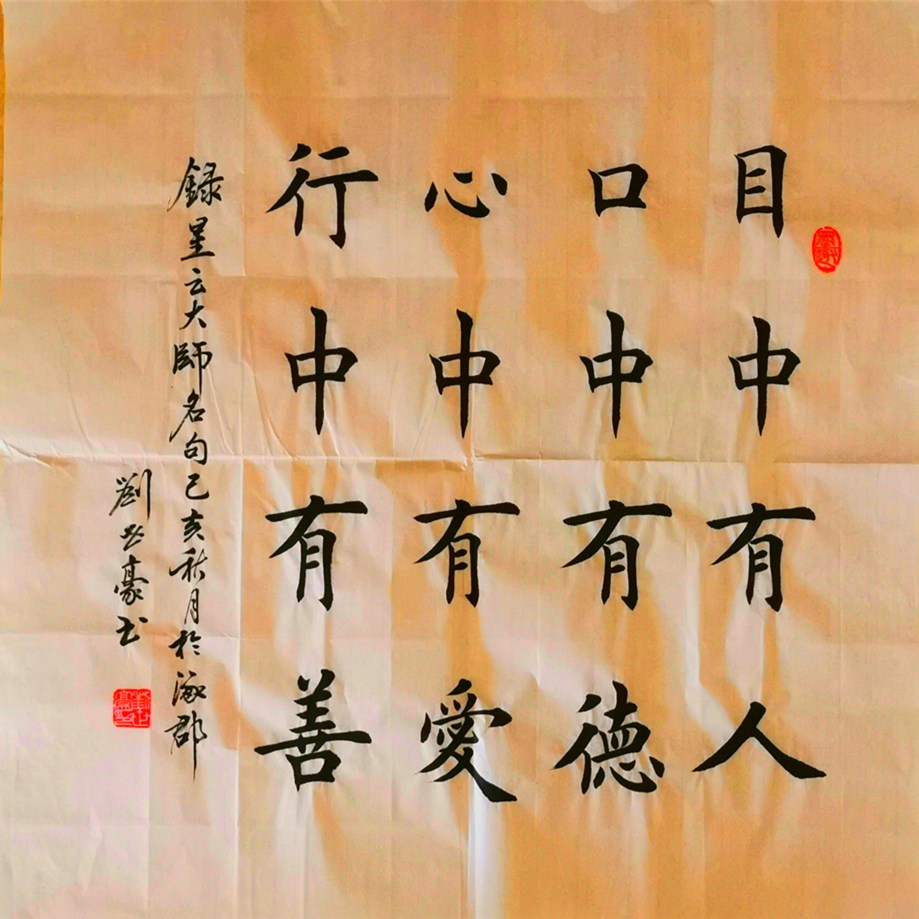 目中有人
口中有德
心中有愛
行中有善
録星云大師名句己亥秋月於涿郡
劉世豪书